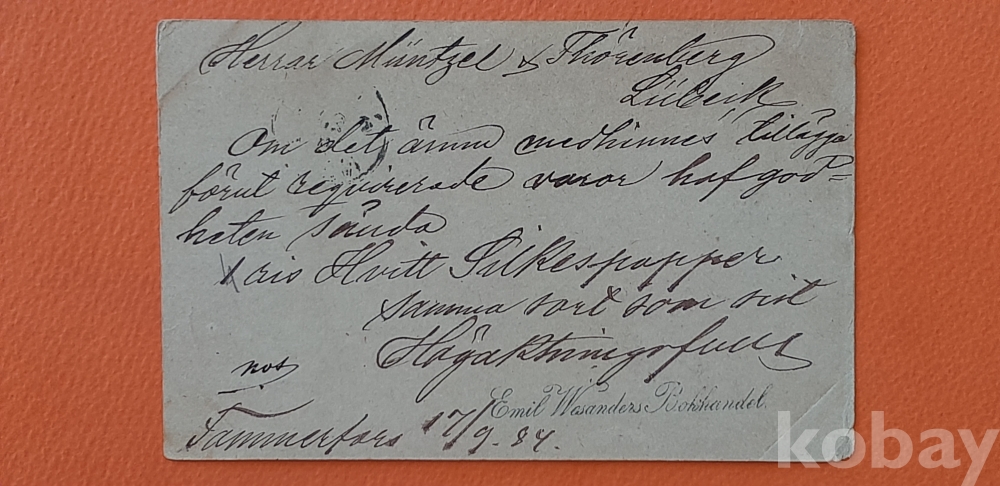 Herrar Müntzel & Thörenberg
Lübeck
Om det ännu medhinnes, tillägga
förut requirerade varor haf god=
heten sända
1 ris Hvitt Silkespapper
samma sort som sist
Högaktningsfullt
Emil Wesanders Bokhandel.
Tammerfors 17/9. 84.
kobay